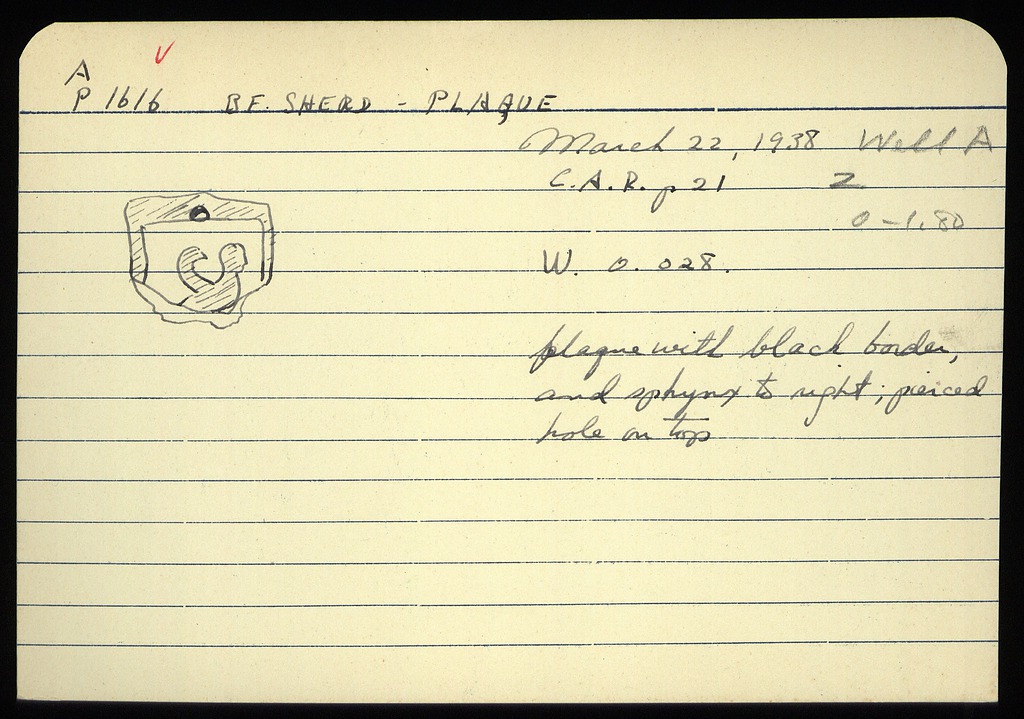 A
P 1616 BF. SHERD - PLAQUE
March 22, 1938 Well A
C.A.R. p 21 Z
0-1.80
W. 0.028.
plaque with black border,
and sphynx to right; pierced
hole on top